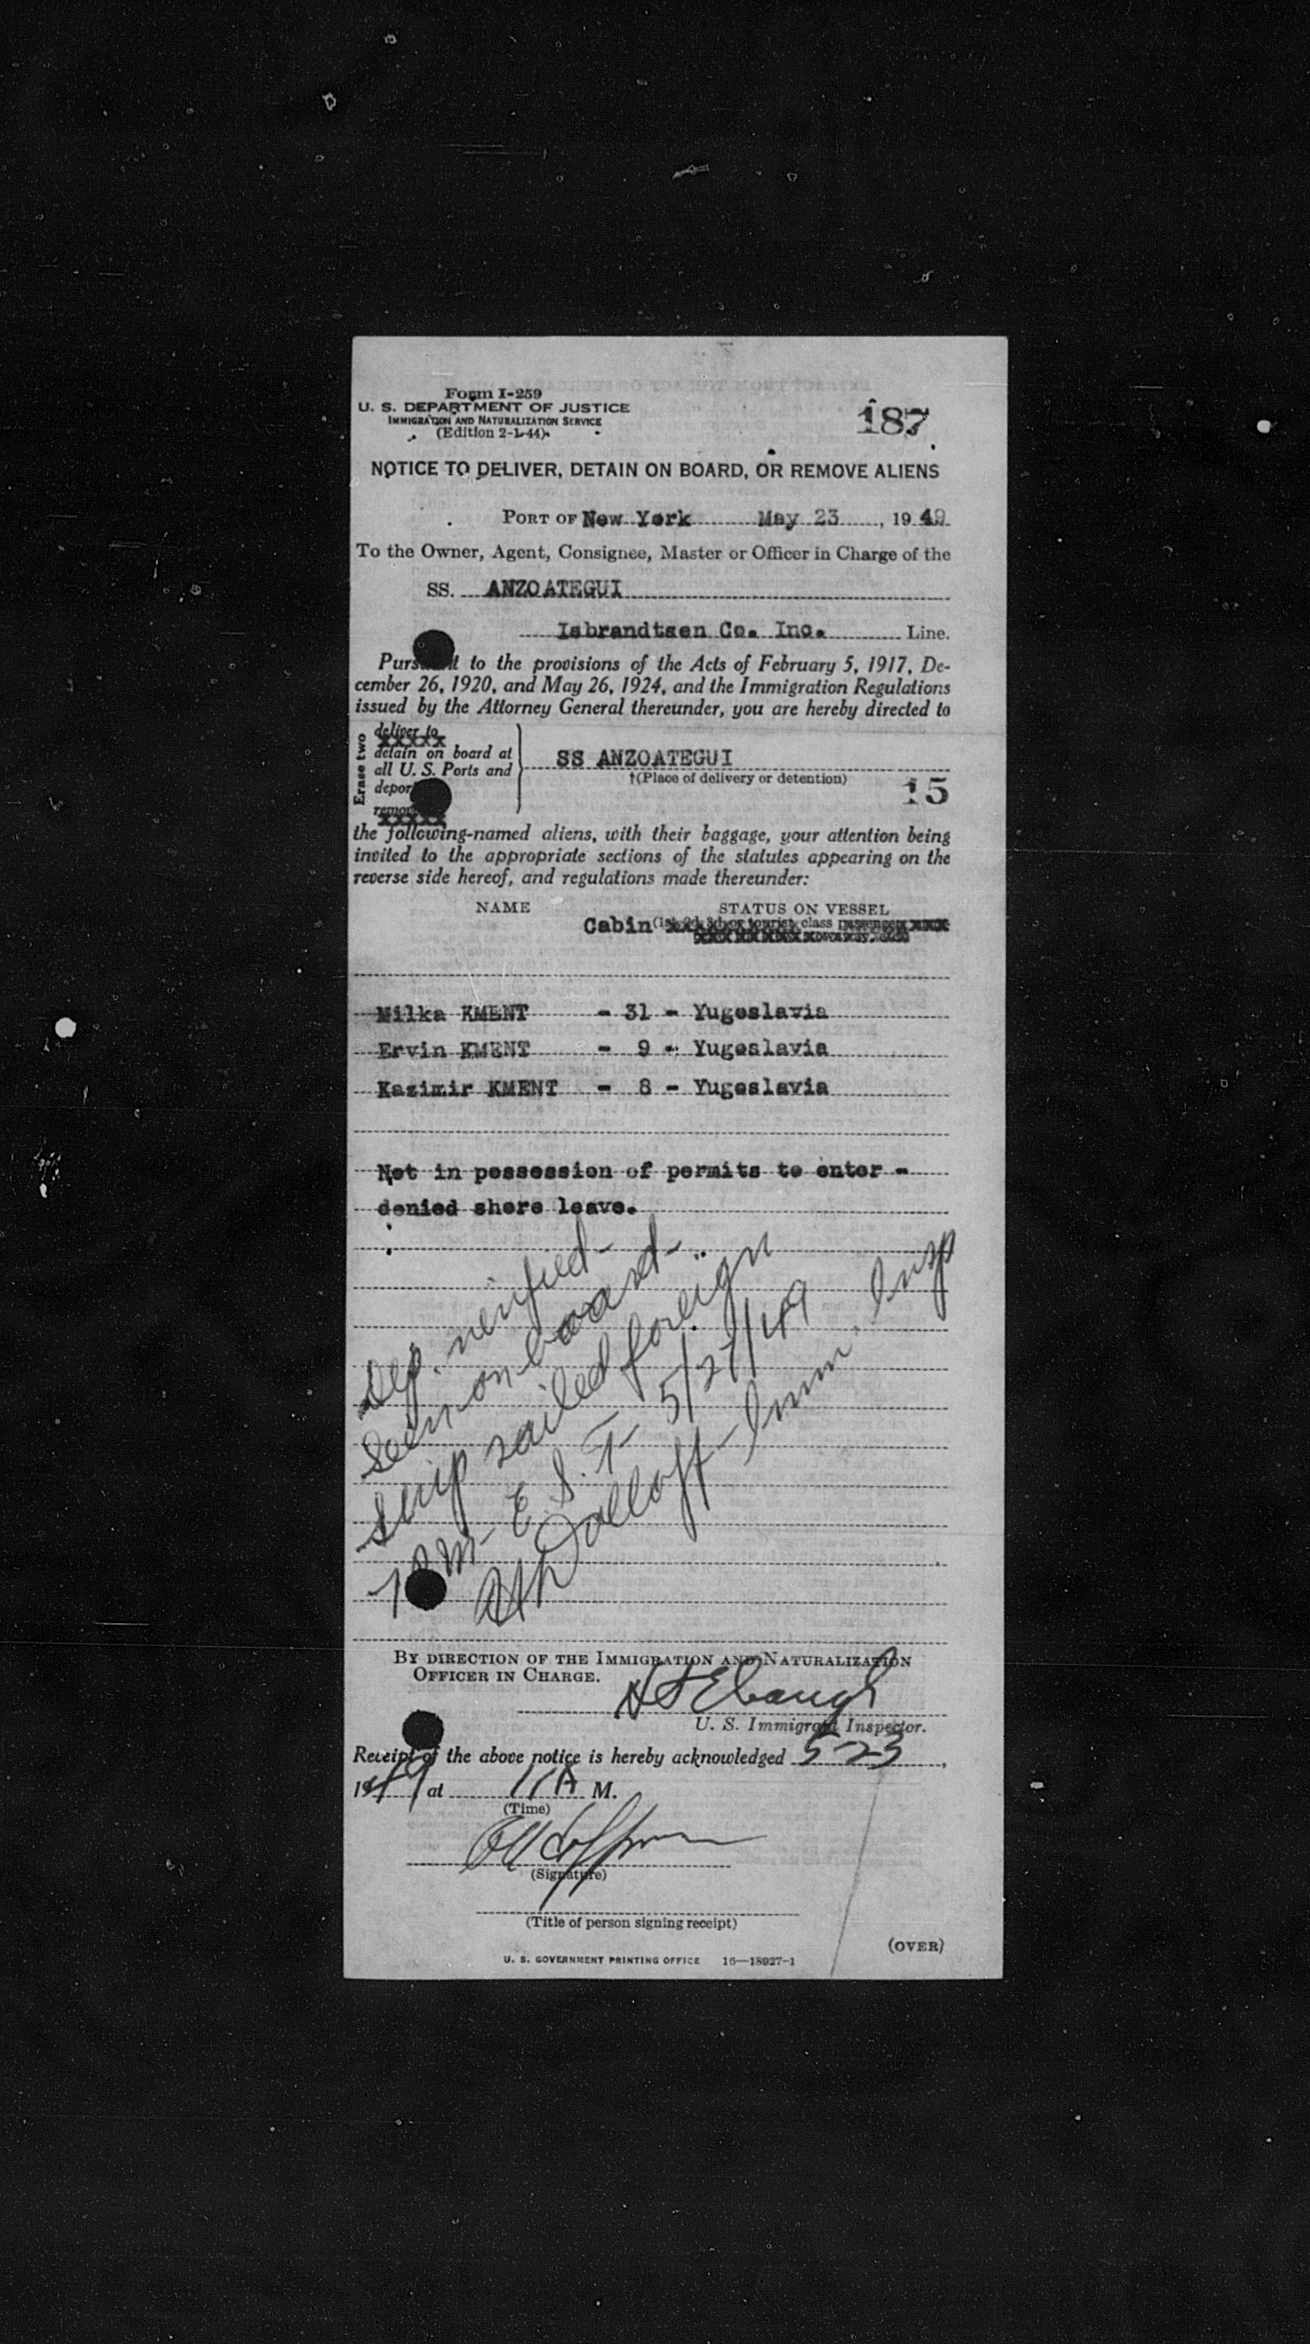 Form I-259
U. S. DEPARTMENT OF JUSTICE
IMMIGRATION AND NATURALIZATION SERVICE
(Edition 2-1-44)
187
NOTICE TO DELIVER, DETAIN ON BOARD, OR REMOVE ALIENS
PORT OF New York May 23, 1949
To the Owner, Agent, Consignee, Master or Officer in Charge of the
SS. ANZOATEGUI
Isbrandtsen Co. Inc. Line.
Pursuant to the provisions of the Acts of February 5, 1917, De-
cember 26, 1920, and May 26, 1924, and the Immigration Regulations
issued by the Attorney General thereunder, you are hereby directed to
Erase two
deliver to
xxxxx
detain on board at
all U. S. Ports and
deport
remove
xxxxx
SS ANZOATEGUI
†(Place of delivery or detention)
15
the following-named aliens, with their baggage, your attention being
invited to the appropriate sections of the statutes appearing on the
reverse side hereof, and regulations made thereunder:
NAME STATUS ON VESSEL
Cabin (1st, 2d, 3d, or tourist class passenger
Milka KMENT - 31 - Yugoslavia
Ervin KMENT - 9 - Yugoslavia
Kazimir KMENT - 8 - Yugoslavia
Not in possession of permits to enter -
denied shore leave.
Dep. verified -
Seen on board -
Ship sailed foreign
7 PM - E.S.T. 5/27/49
Imm. Insp
BY DIRECTION OF THE IMMIGRATION AND NATURALIZATION
OFFICER IN CHARGE.
H S Ebaugh
U. S. Immigrant Inspector.
Receipt of the above notice is hereby acknowledged 5-23,
1949 at 11 A M.
(Time)
(Signature)
(Title of person signing receipt)
(OVER)
U. S. GOVERNMENT PRINTING OFFICE 16—18927-1